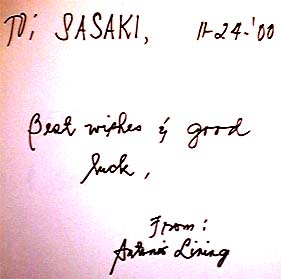 To; SASAKI, 11-24-'00
Best wishes & good
luck,
From:
Antonio Lining